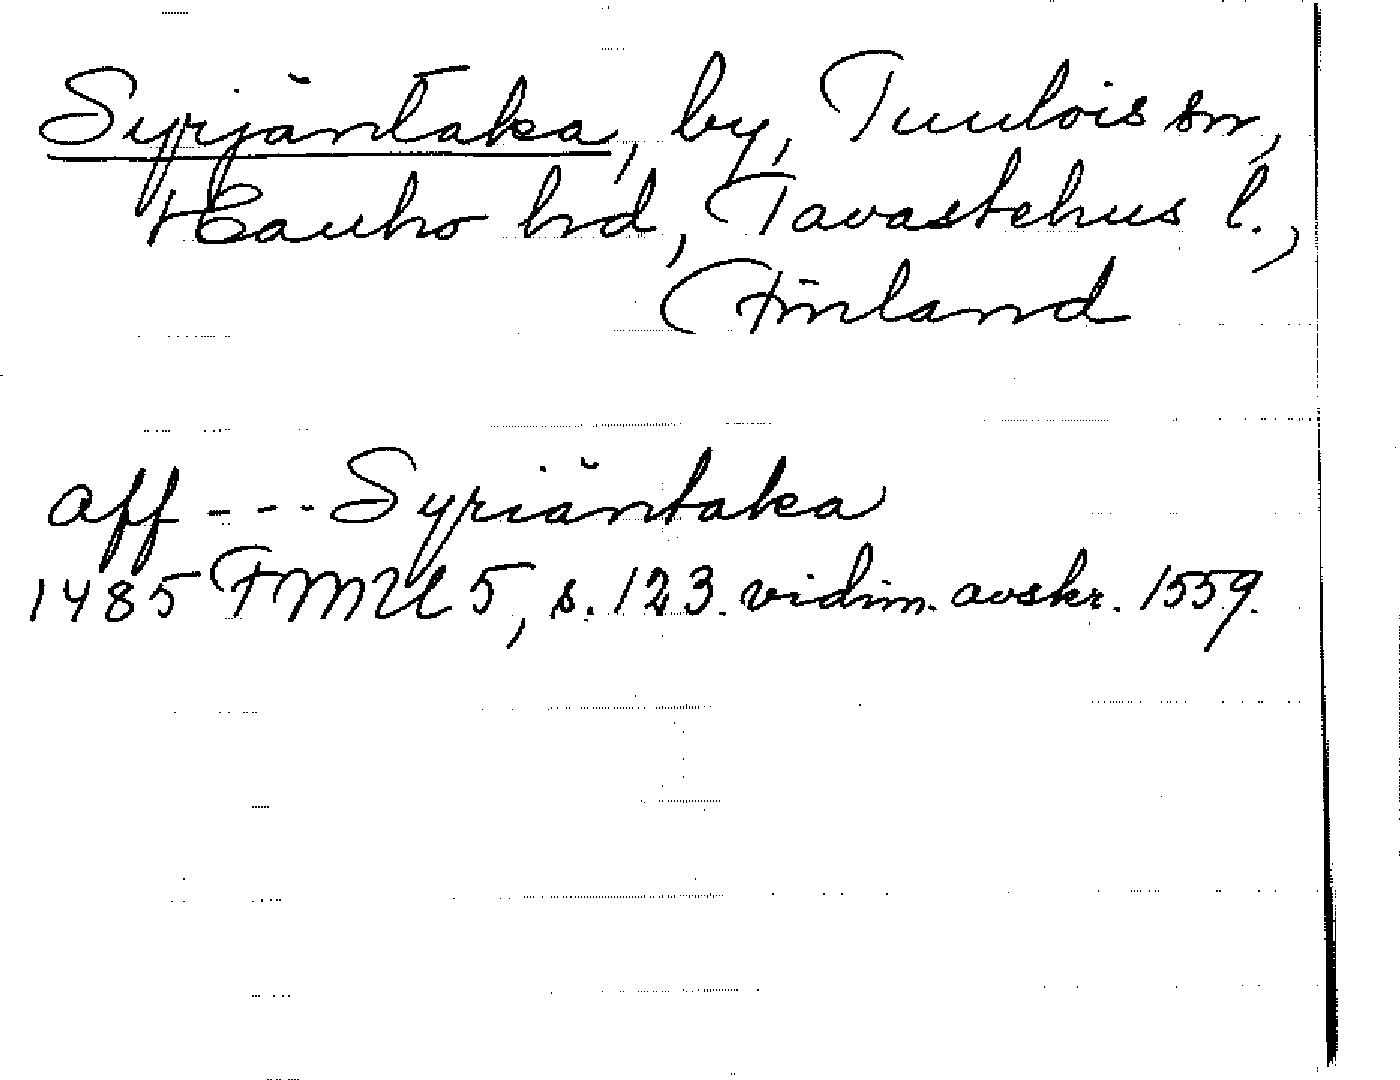 Syrjäntaka, by, Tuulois sn,
Hauho hd, Tavastehus l.,
Finland
aff - - - Syriäntaka
1485 FMU 5, s. 123. vidim. avskr. 1559.